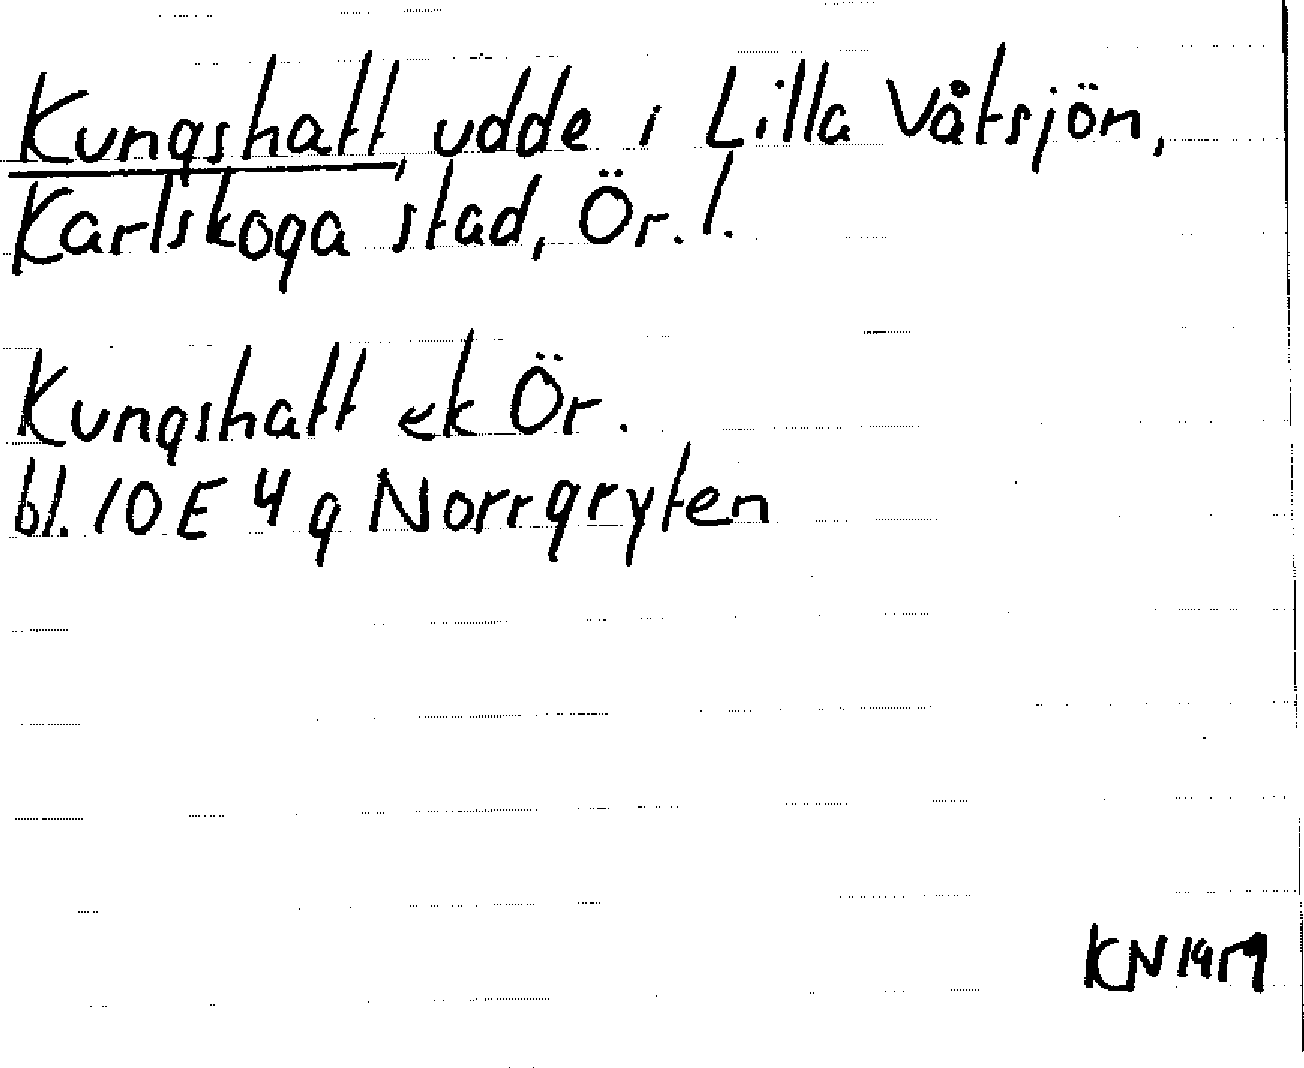 Kungshatt, udde i Lilla Våtsjön,
Karlskoga stad, Ör. l.
Kungshatt ek Ör.
bl. 10 E 4 g Norrgryten
KN